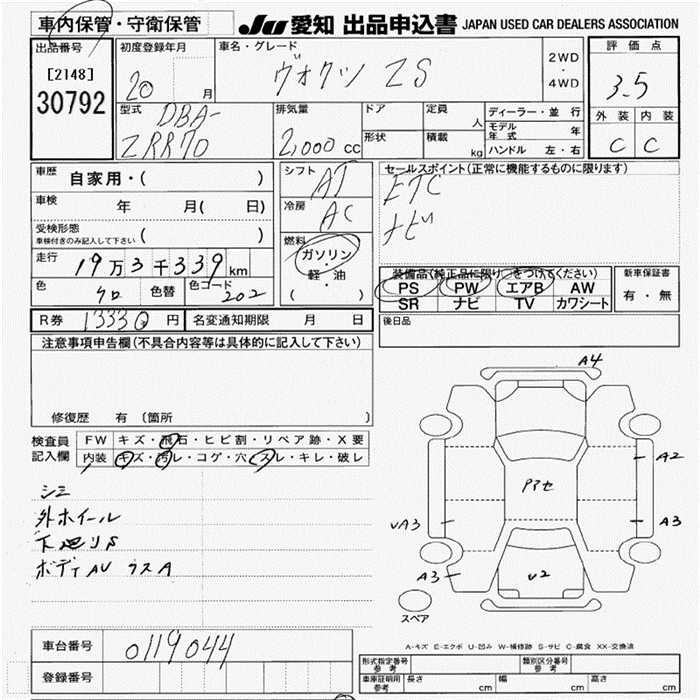 車内保管・守衛保管 JU 愛知 出品申込書 JAPAN USED CAR DEALERS ASSOCIATION
出品番号 初度登録年月 車名・グレード 評価点
[2148] 20 月 ヴォクシ ZS 2WD・4WD 3.5
30792
型式 DBA-ZRR70 排気量 2,000 cc ドア 定員 人 ディーラー・並行 外装 内装
形状 積載 kg モデル年式 年 C C
ハンドル 左・右
車歴 自家用・( ) シフト AT セールスポイント(正常に機能するものに限ります)
車検 年 月( 日) 冷房 AC ETC
受検形態 ナビ
車検付きのみ記入して下さい ( ) 燃料 ガソリン・軽・油 ( )
走行 19万3千339km 装備品(純正品に限り○をつけてください) 新車保証書
色 クロ 色替 色コード 202 PS PW エアB AW 有・無
SR ナビ TV カワシート
R券 13330 円 名変通知期限 月 日 後日品
注意事項申告欄(不具合内容等は具体的に記入して下さい)
修復歴 有 〔箇所
検査員記入欄 FW キズ・飛石・ヒビ割・リペア跡・X要
内装 キズ・汚レ・コゲ・穴・スレ・キレ・破レ
シミ
外ホイール
ボディAV ラスA
A4
A2
Pアセ
vA3 A3
A3 v2
スペア
車台番号 0119044
登録番号
A-キズ E-エクボ U-凹み W-補修跡 S-サビ C-腐食 XX-交換済
形式指定番号 参考 類別区分番号 参考
車庫証明用 参考 長さ cm 幅 cm 高さ cm